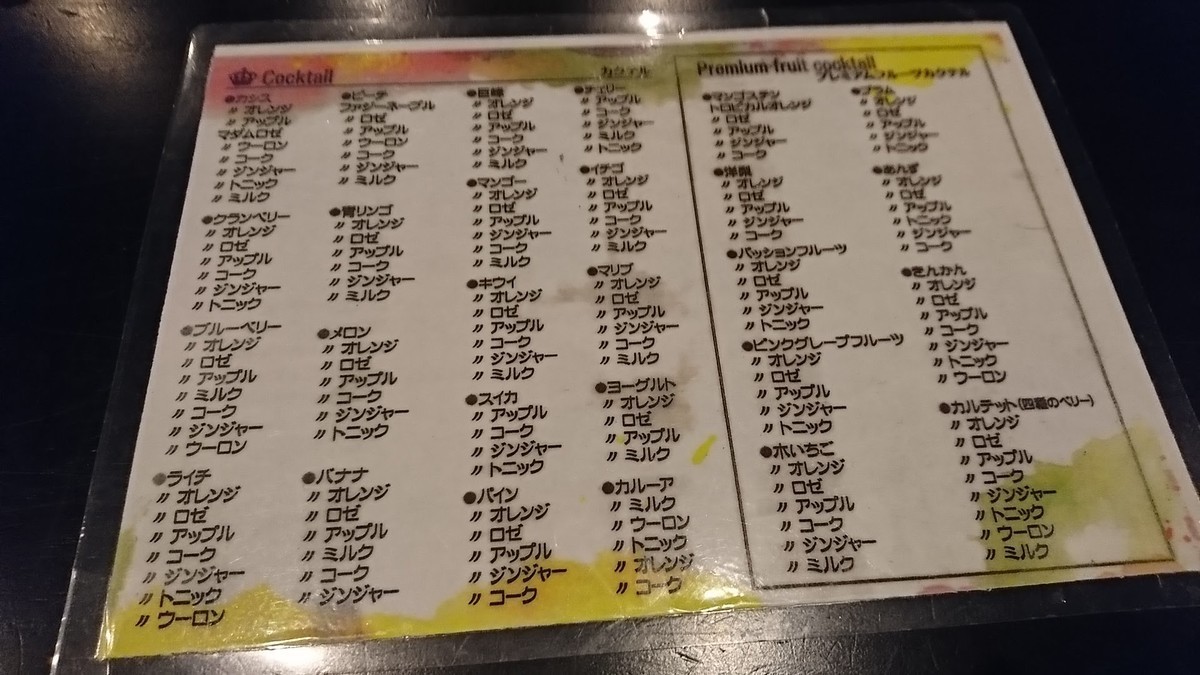 Cocktail カクテル
●カシス
〃オレンジ
〃アップル
マダムロゼ
〃ウーロン
〃コーク
〃ジンジャー
〃トニック
〃ミルク
●クランベリー
〃オレンジ
〃ロゼ
〃アップル
〃コーク
〃ジンジャー
〃トニック
●ブルーベリー
〃オレンジ
〃ロゼ
〃アップル
〃ミルク
〃コーク
〃ジンジャー
〃ウーロン
●ライチ
〃オレンジ
〃ロゼ
〃アップル
〃コーク
〃ジンジャー
〃トニック
〃ウーロン
●ピーチ
ファジーネーブル
〃ロゼ
〃アップル
〃ウーロン
〃コーク
〃ジンジャー
〃ミルク
●青リンゴ
〃オレンジ
〃ロゼ
〃アップル
〃コーク
〃ジンジャー
〃ミルク
●メロン
〃オレンジ
〃ロゼ
〃アップル
〃コーク
〃ジンジャー
〃トニック
●バナナ
〃オレンジ
〃ロゼ
〃アップル
〃ミルク
〃コーク
〃ジンジャー
●巨峰
〃オレンジ
〃ロゼ
〃アップル
〃コーク
〃ジンジャー
〃ミルク
●マンゴー
〃オレンジ
〃ロゼ
〃アップル
〃ジンジャー
〃コーク
〃ミルク
●キウイ
〃オレンジ
〃ロゼ
〃アップル
〃コーク
〃ジンジャー
〃ミルク
●スイカ
〃アップル
〃コーク
〃ジンジャー
〃トニック
●パイン
〃オレンジ
〃ロゼ
〃アップル
〃ジンジャー
〃コーク
●チェリー
〃アップル
〃コーク
〃ジンジャー
〃ミルク
〃トニック
●イチゴ
〃オレンジ
〃ロゼ
〃アップル
〃コーク
〃ジンジャー
〃ミルク
●マリブ
〃オレンジ
〃ロゼ
〃アップル
〃ジンジャー
〃コーク
〃ミルク
●ヨーグルト
〃オレンジ
〃ロゼ
〃アップル
〃ミルク
●カルーア
〃ミルク
〃ウーロン
〃トニック
〃オレンジ
〃コーク
Premium fruit cocktail
プレミアムフルーツカクテル
●マンゴスチン
トロピカルオレンジ
〃ロゼ
〃アップル
〃ジンジャー
〃コーク
●洋梨
〃オレンジ
〃ロゼ
〃アップル
〃ジンジャー
〃コーク
●パッションフルーツ
〃オレンジ
〃ロゼ
〃アップル
〃ジンジャー
〃トニック
●ピンクグレープフルーツ
〃オレンジ
〃ロゼ
〃アップル
〃ジンジャー
〃トニック
●木いちご
〃オレンジ
〃ロゼ
〃アップル
〃コーク
〃ジンジャー
〃ミルク
●プラム
〃オレンジ
〃ロゼ
〃アップル
〃ジンジャー
〃トニック
●あんず
〃オレンジ
〃ロゼ
〃アップル
〃トニック
〃ジンジャー
〃コーク
●きんかん
〃オレンジ
〃ロゼ
〃アップル
〃コーク
〃ジンジャー
〃トニック
〃ウーロン
●カルテット(四種のベリー)
〃オレンジ
〃ロゼ
〃アップル
〃コーク
〃ジンジャー
〃トニック
〃ウーロン
〃ミルク